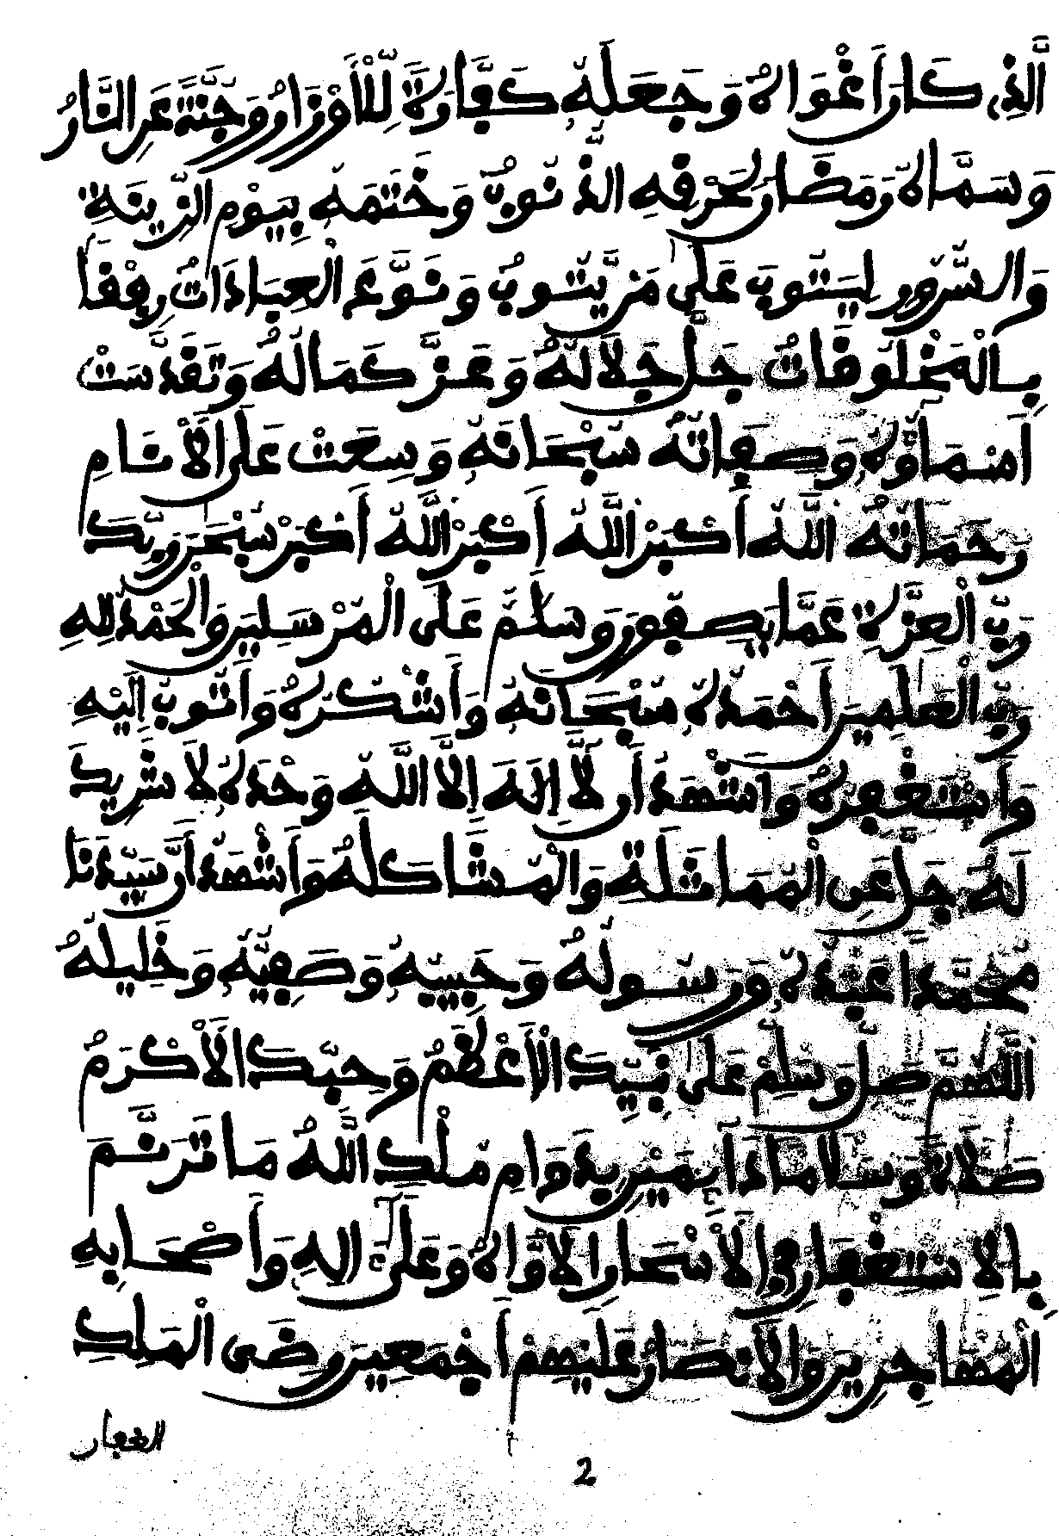 الَّذِي كَانَ أَغْوَاهُ وَجَعَلَهُ كَفَّارَةً لِلْأَوْزَارِ وَجُنَّةً عَنِ النَّارِ
وَسَمَّاهُ رَمَضَانَ لِحَرْقِهِ الذُّنُوبَ وَخَتَمَهُ بِيَوْمِ الزِّينَةِ
وَالسُّرُورِ لِيَتُوبَ عَلَى مَنْ يَّتُوبُ وَنَوَّعَ الْعِبَادَاتِ رِفْقًا
بِالْمَخْلُوقَاتِ جَلَّ جَلَالُهُ وَعَزَّ كَمَالُهُ وَتَقَدَّسَتْ
أَسْمَاؤُهُ وَصِفَاتُهُ سُبْحَانَهُ وَسِعَتْ عَلَى الْأَنَامِ
رَحَمَاتُهُ اللَّهُ أَكْبَرُ اللَّهُ أَكْبَرُ اللَّهُ أَكْبَرُ سُبْحَانَ رَبِّكَ
رَبِّ الْعِزَّةِ عَمَّا يَصِفُونَ وَسَلَامٌ عَلَى الْمُرْسَلِينَ وَالْحَمْدُ لِلَّهِ
رَبِّ الْعَالَمِينَ أَحْمَدُهُ سُبْحَانَهُ وَأَشْكُرُهُ وَأَتُوبُ إِلَيْهِ
وَأَسْتَغْفِرُهُ وَأَشْهَدُ أَن لَّا إِلَهَ إِلَّا اللَّهُ وَحْدَهُ لَا شَرِيكَ
لَهُ جَلَّ عَنِ الْمُمَاثَلَةِ وَالْمُشَاكَلَةِ وَأَشْهَدُ أَنَّ سَيِّدَنَا
مُحَمَّدًا عَبْدُهُ وَرَسُولُهُ وَحَبِيبُهُ وَصَفِيُّهُ وَخَلِيلُهُ
اللَّهُمَّ صَلِّ وَسَلِّمْ عَلَى نَبِيِّكَ الْأَعْظَمِ وَحِبِّكَ الْأَكْرَمِ
صَلَاةً وَسَلَامًا دَآئِمَيْنِ بِدَوَامِ مُلْكِ اللَّهِ مَا تَرَنَّمَ
بِالِاسْتِغْفَارِ فِي الْأَسْحَارِ الْأَوَّاهُ وَعَلَى آلِهِ وَأَصْحَابِهِ
الْمُهَاجِرِينَ وَالْأَنْصَارِ عَلَيْهِمْ أَجْمَعِينَ رِضَى الْمَلِكِ
الغفار
2